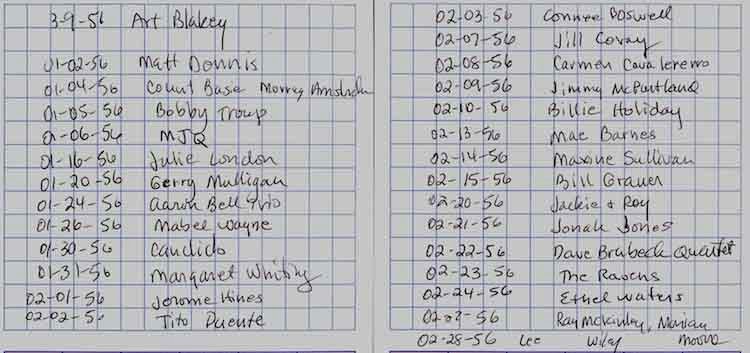 3-9-56 Art Blakey
01-02-56 Matt Donnis
01-04-56 Count Base Morey Amsterdam
01-05-56 Bobby Troup
01-06-56 MJQ
01-16-56 Julie London
01-20-56 Gerry Mulligan
01-24-56 Aaron Bell Trio
01-26-56 Mabel Wayne
01-30-56 Candido
01-31-56 Margaret Whiting
02-01-56 Jerome Hines
02-02-56 Tito Puente
02-03-56 Connee Boswell
02-07-56 Jill Coray
02-08-56 Carmen Cavalerero
02-09-56 Jimmy McPartland
02-10-56 Billie Holiday
02-13-56 Mae Barnes
02-14-56 Maxine Sullivan
02-15-56 Bill Grauer
02-20-56 Jackie & Roy
02-21-56 Jonah Jones
02-22-56 Dave Brubeck Quartet
02-23-56 The Ravens
02-24-56 Ethel Waters
02-2?-56 Ray McKinley, Marian
02-28-56 Lee Wiley Moore